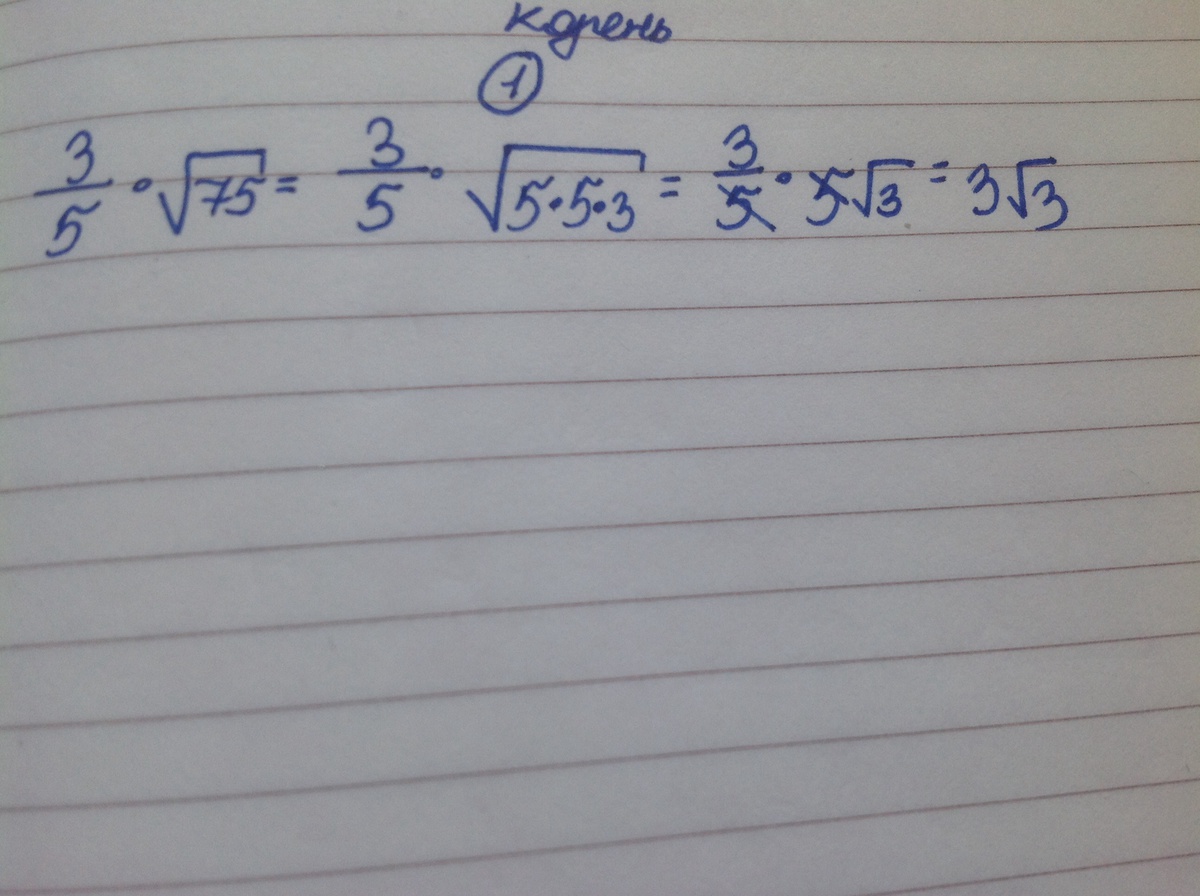 корень
1
3/5 · √75 = 3/5 · √5·5·3 = 3/5 · 5√3 = 3√3